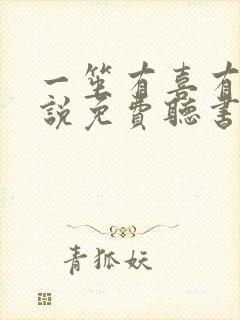 一笙有喜有
說免費聽書
青狐妖